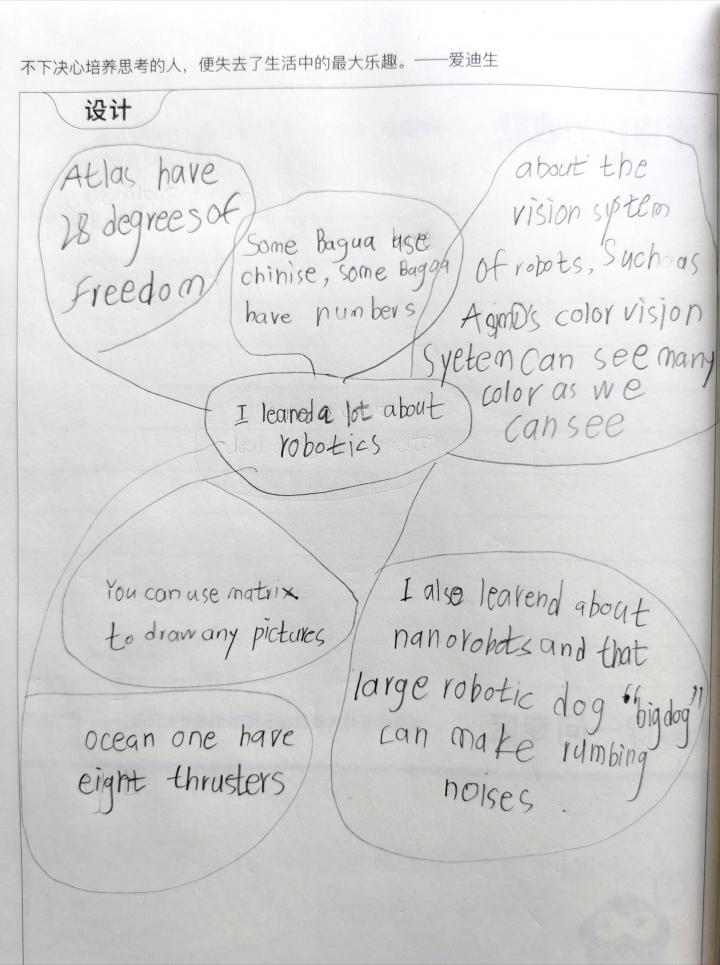 不下决心培养思考的人，便失去了生活中的最大乐趣。——爱迪生
设计
Atlas have
28 degrees of
freedom
Some Bagua use
chinise, some Bagga
have numbers
about the
vision syptem
of robots, Such as
color vision
Syetem Can see many
color as we
can see
I leaned a lot about
robotics
You can use matrix
to draw any pictures
I also learend about
nanorobots and that
large robotic dog "bigdog"
can make rumbing
noises.
ocean one have
eight thrusters